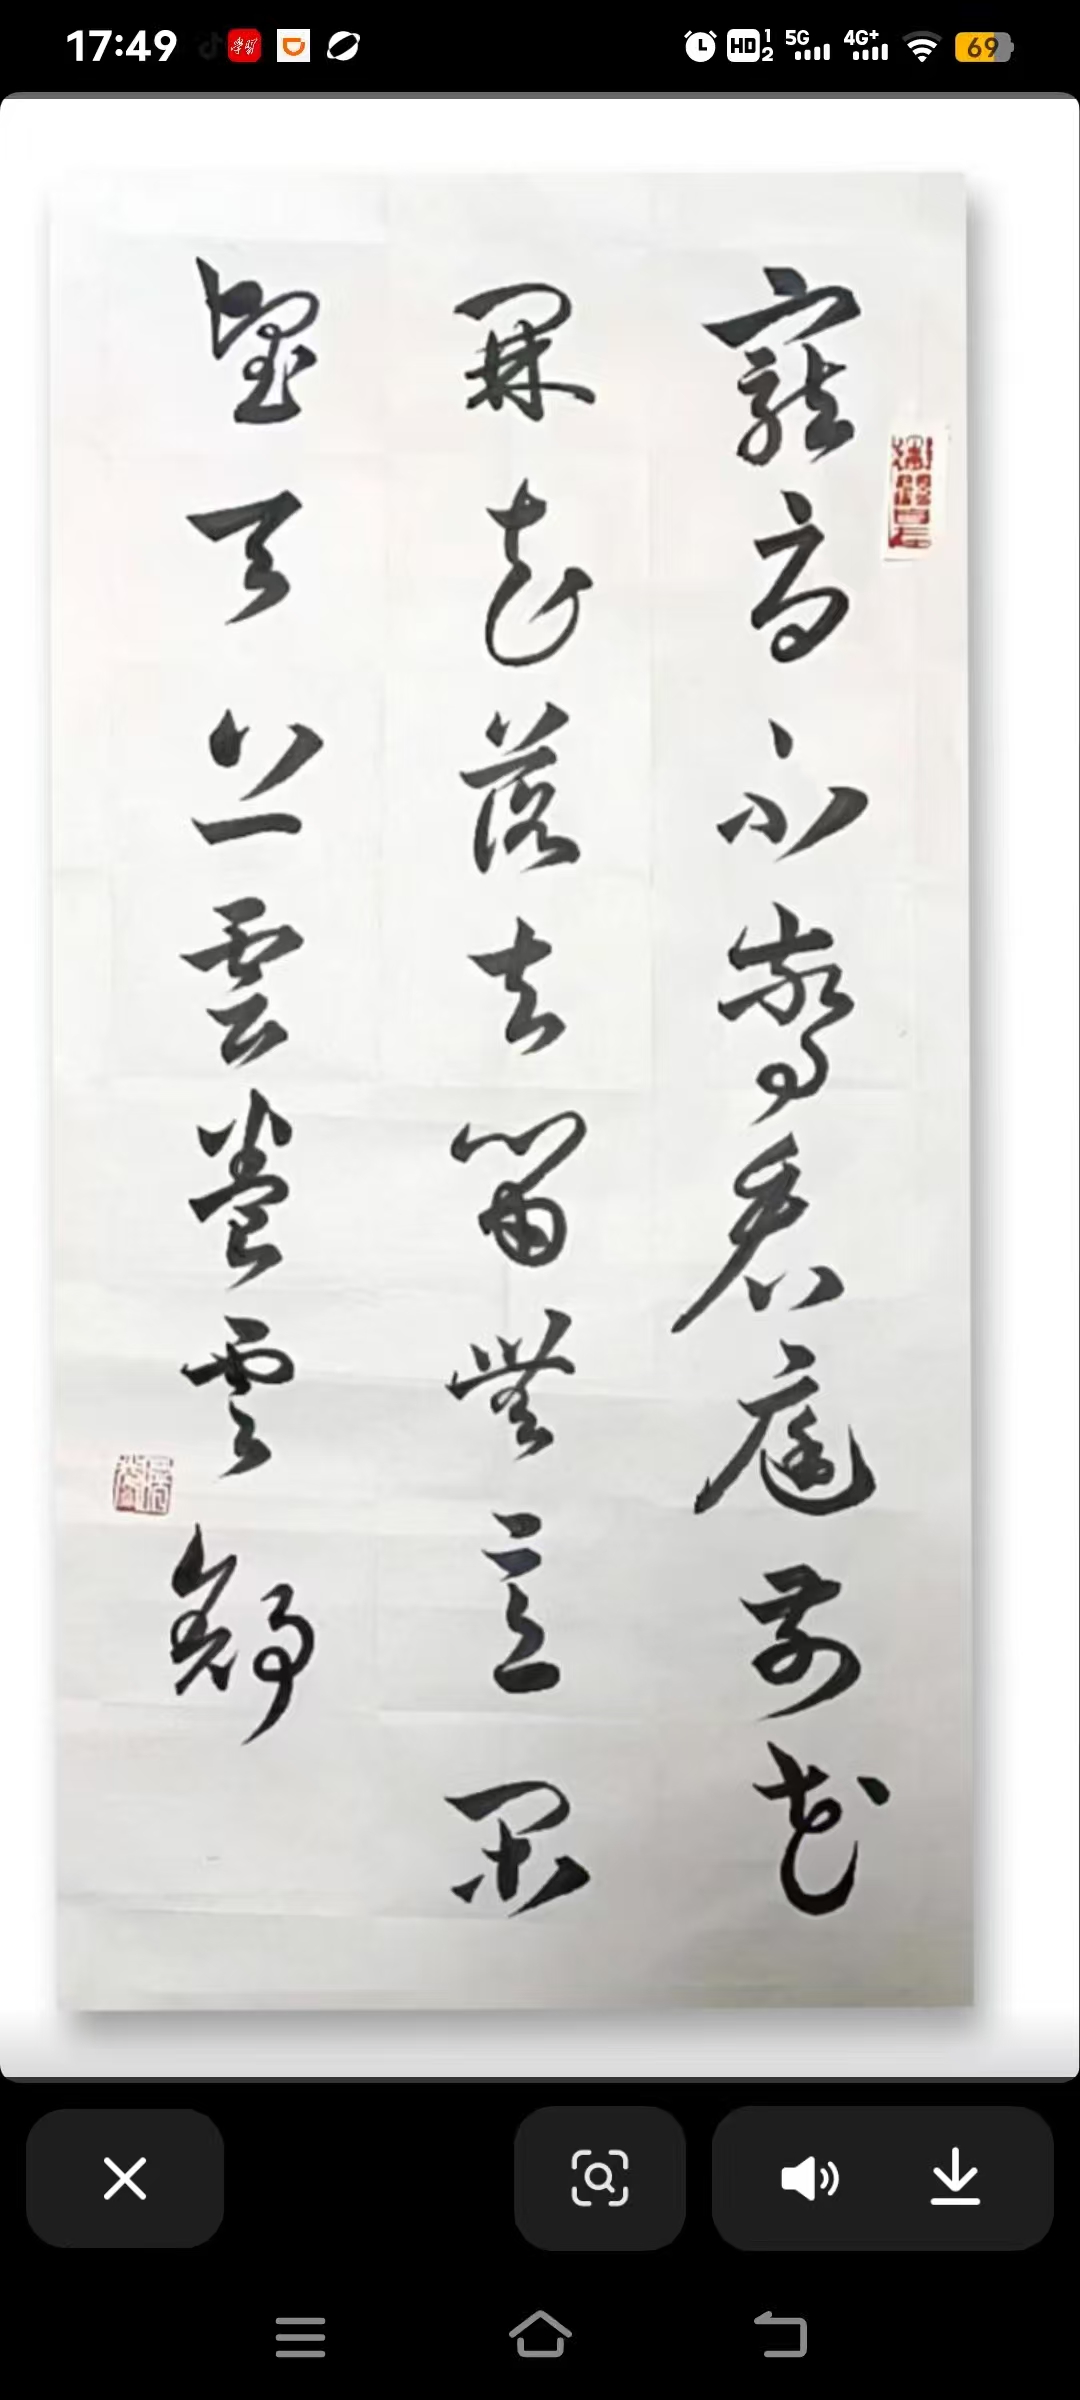 17:49
HD 1 2
5G
4G+
69
寵辱不驚看庭前花
開花落去留無意閑
望天上雲卷雲舒